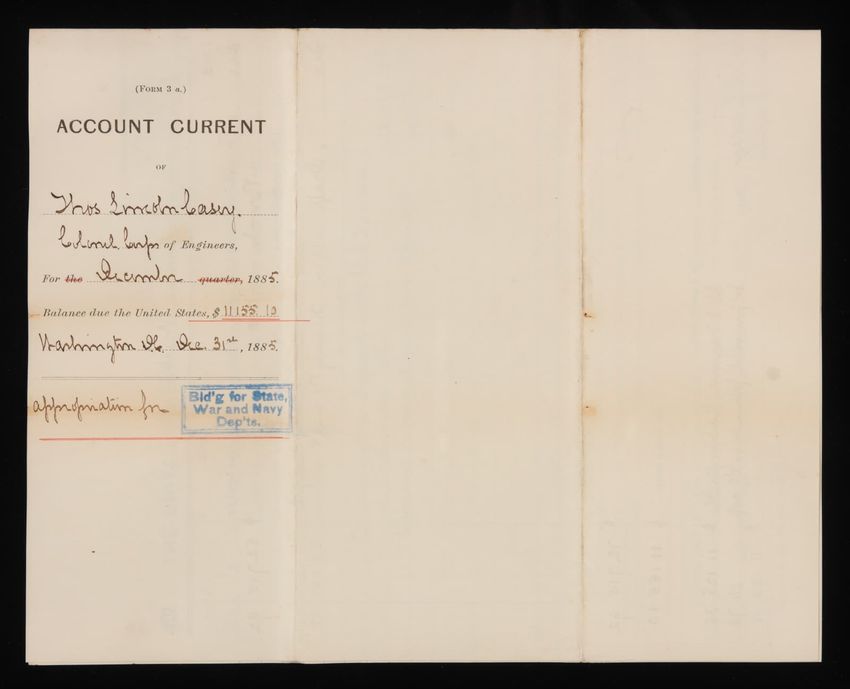 (Form 3 a.)
ACCOUNT CURRENT
OF
Thos Lincoln Casey.
Colonel, Corps of Engineers,
For the December quarter, 1885.
Balance due the United States, $ 11155.10
Washington DC. Dec. 31st, 1885.
appropriation for
Bld'g for State,
War and Navy
Dep'ts.